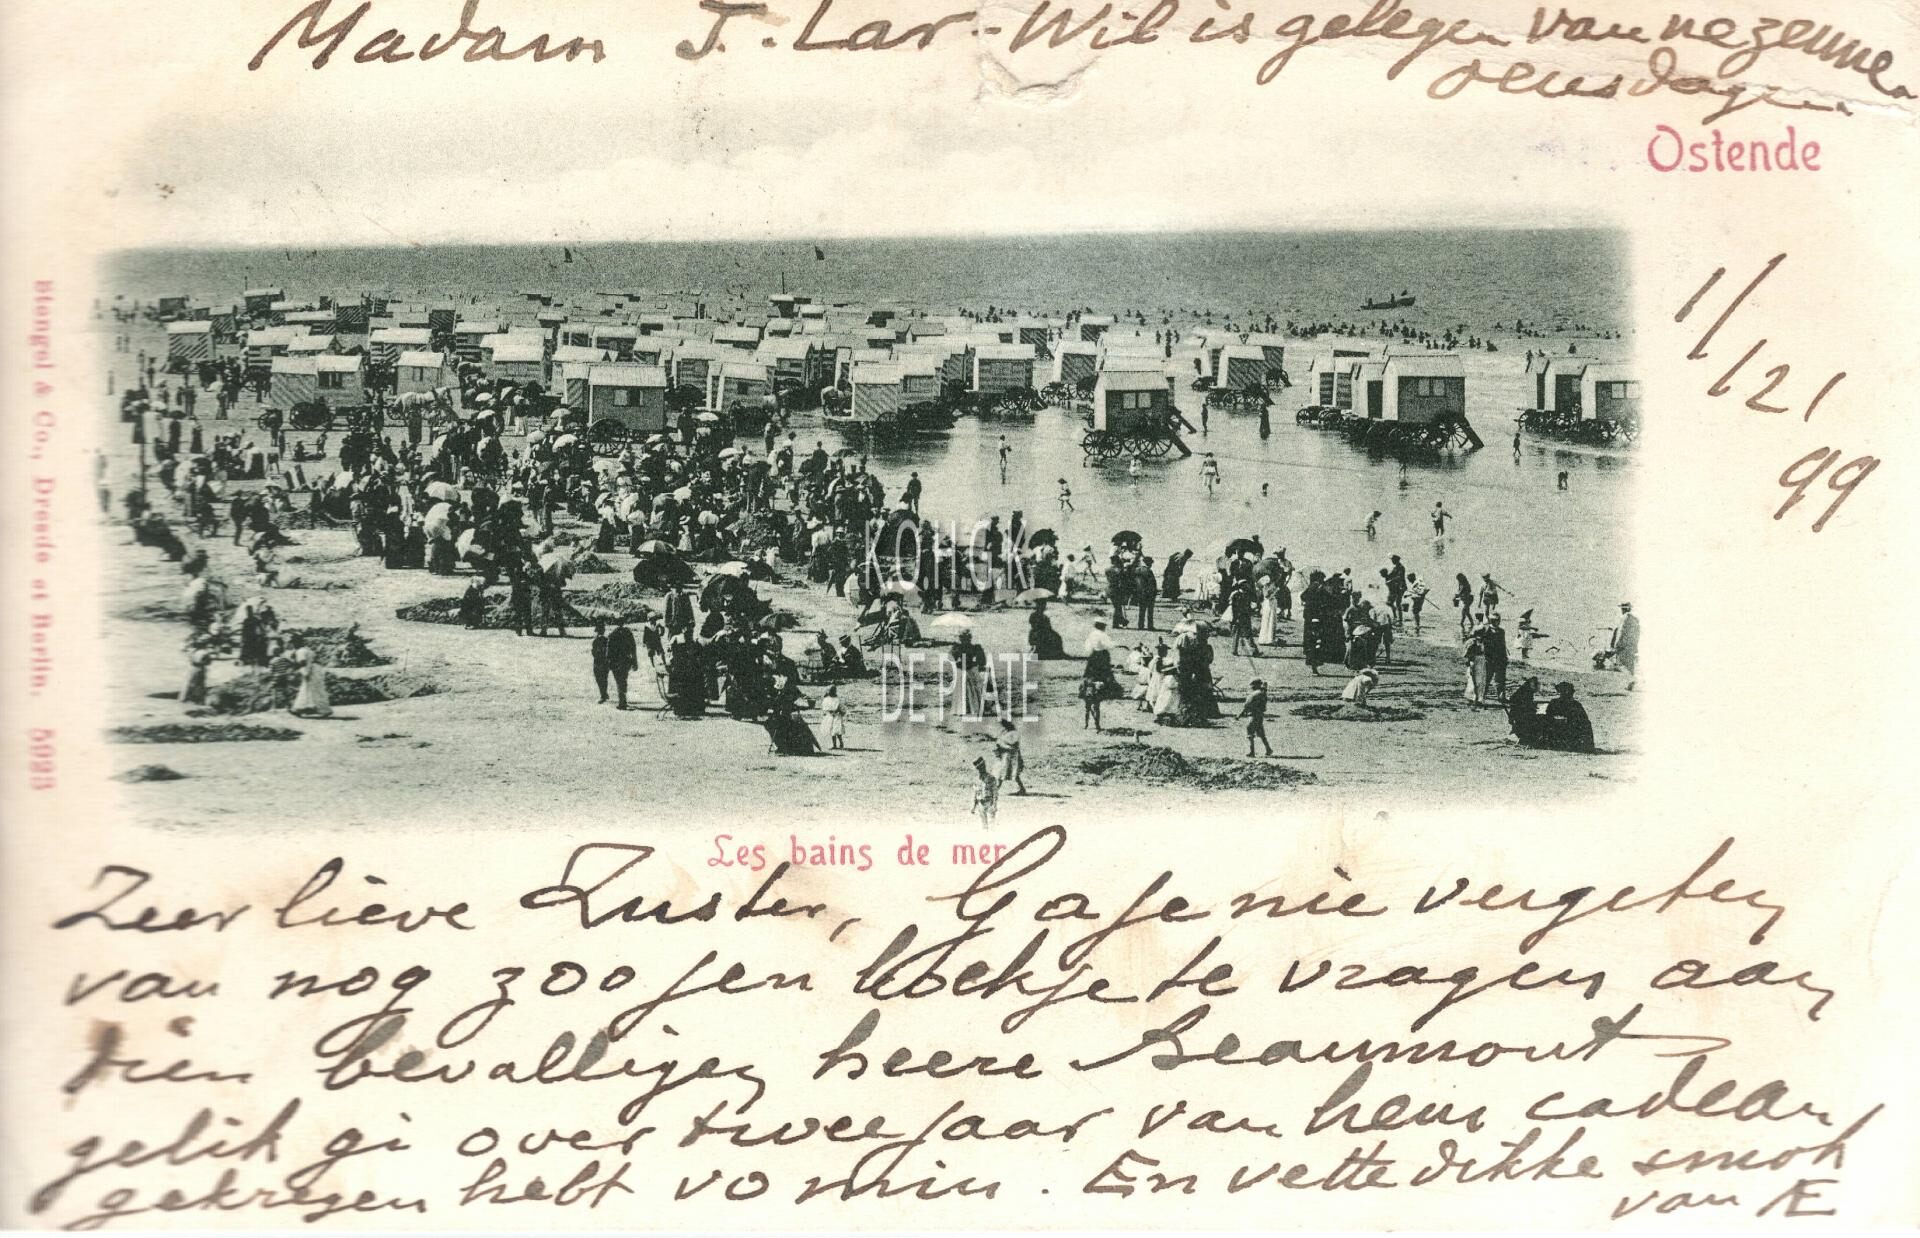 Madam J. Lar - Wil is gelegen van nezennen
oensdagen
Ostende
1/12/99
Stengel & Co., Dresde et Berlin. 5923
K.O.H.G.K
DE PLATE
Les bains de mer
Zeer lieve Zuster, Ga je nie vergeten
van nog zoo jen boekje te vragen aan
dien bevalligen heere Beaumont
gelik gi over twee jaar van hem cadeau
gekregen hebt vo min. En vette dikke smok
van Æ